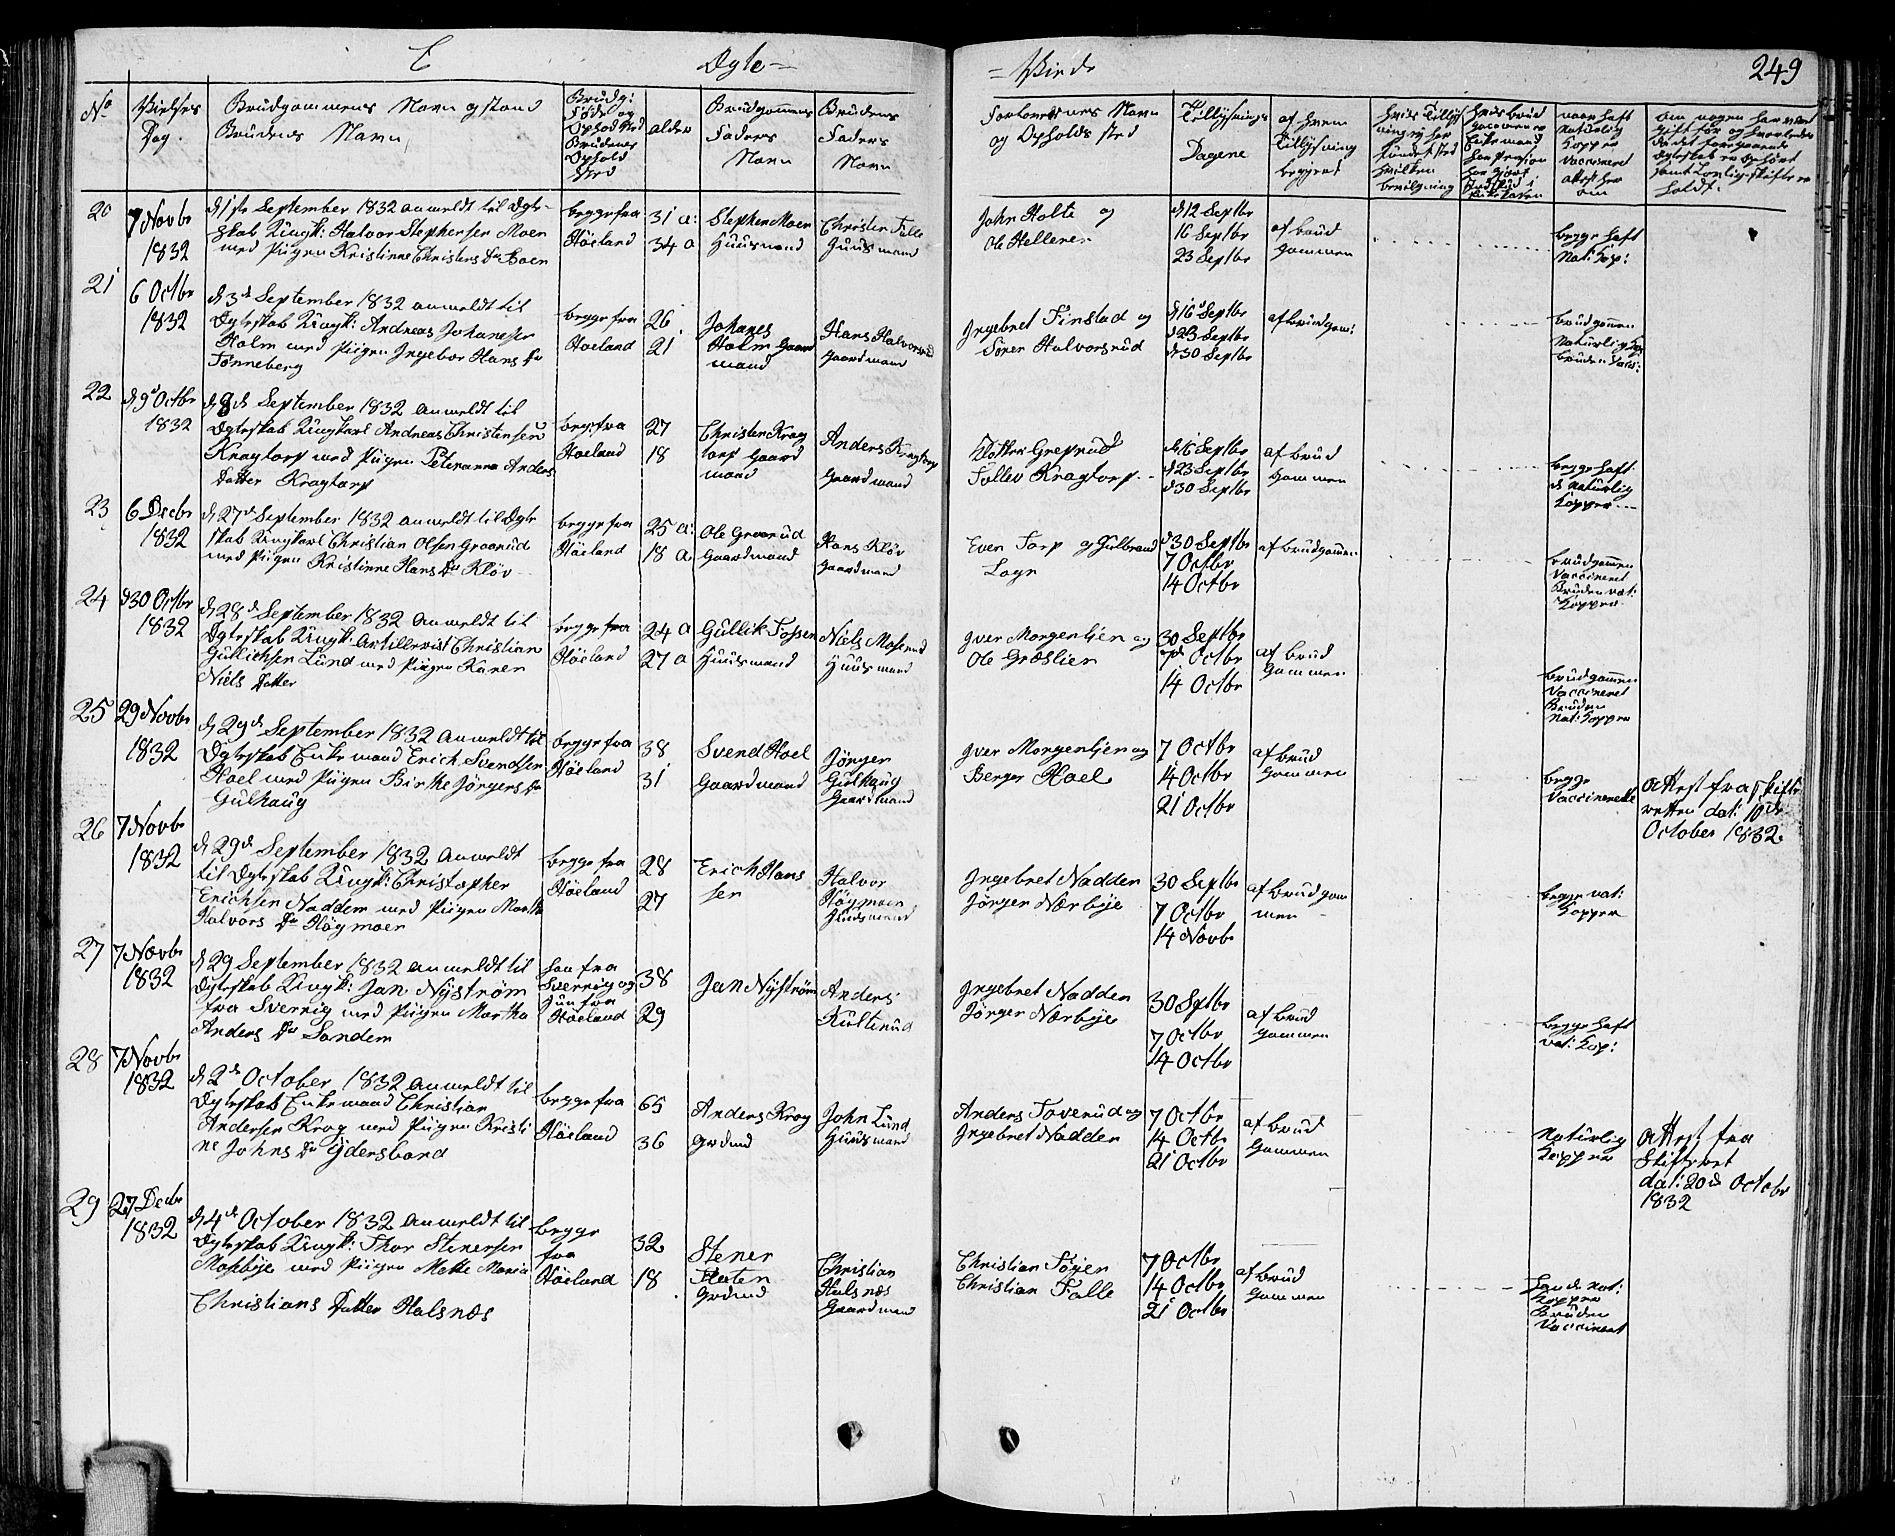 E Dgte- = Wiede 249
No
Vielses Dag.
Brudgommens Navn og stand
Brudens Navn
Brudg: Føde og Ophold sted Brudenes Ophold sted
alder
Brudgommens Faders Navn
Brudens Faders Navn
Forlovernes Navn og Opholds sted
Tillysnings Dagene
af hvem Tillysning begjert
20
7 Novbr 1832
d 1ste September 1832 anmeldt til Dgte-
skab Ungk: Halvor Stephensen Moen
med Pigen Kristinne Christens Dr Boen
begge fra Høeland
31 a:
34 a
Stephen Moen Huusmand
Christen Falle Huusmand
John Holte og
Ole Hellener
d 12 Septbr
16 Septbr
23 Septbr
af brud gommen
begge haft Nat: Kop:
21
6 Octbr 1832
d 3d September 1832 anmeldt til
Dgteskab Ungk: Andreas Johanesen
Holm med Pigen Ingebor Hans Dr
Tønneberg
begge fra Hoeland
26
21
Johanes Holm Gaard mand
Hans Halvorsrud Gaardmand
Ingebret Finstad og
Søren Halvorsrud
d 16 Septbr
d 23 Septbr
d 30 Septbr
af brudgom:
brudgommen Naturlig Kop: bruden Vacc:
22
d 9d Octbr 1832
d 8d September 1832 anmeldt til
Dgteskab Ungkarl Andreas Christensen
Kragtorp med Pigen Peteranna Anders
Datter Kragtorp
beg: fra Hoeland
27
18
Christen Krag torp Gaard mand
Anders Kragtorp Gaardmand
Petter Grepsrud
Tollev Kragtorp
d 16 Septbr
d 23 Septbr
d 30 Septbr
af brud gommen
begge haft d naturlig Kopper
23
6 Decbr 1832
d 27d September 1832 anmeldt til Dgte
skab Ungkarl Christian Olsen Graarud
med Pigen Kristinne Hans Dr Kløv
begge fra Høeland
25 a:
18 a.
Ole Graarud Gaardmand
Hans Kløv Gaardmand
Even Torp og Gulbrand
Logn
d 30 Septbr
7 Octbr
14 Octbr
af brudgommen
brudgommen Vaccineret Bruden nat: Kopper
24
d 30 Octbr 1832
d 28d September 1832 anmeldt til
Dgteskab Ungk: Artillerist Christian
Gullichsen Lund med Pigen Karen
Niels Datter
begge fra Høeland
24 a
27 a
Gullik Fossen Huusmand
Niels Moserud Huusmand
Iver Morgenlien og
Ole Græslien
30 Septbr
7d Octbr
14 Octbr
af brud Gommen
brudgommen Vaccineret Bruden Nat: Kopper
25
29 Novbr 1832
d 29d September 1832 anmeldt til
Dgteskab Enkemand Erich Svendsen
Hoel med Pigen Birthe Jørgens Dr
Gulhaug
begge fra Høeland
38
31
Svend Hoel Gaardmand
Jørgen Gulhaug Gaardmand
Iver Morgenlien og
Berger Hoel
7 Octbr
14 Octbr
21 Octbr
af brud Gommen
begge Vaccinerette
Attest fra Skifte
retten dat: 10de
October 1832
26
7 Novbr 1832
d 29d September 1832 anmeldt
til Dgteskab Ungk: Christopher
Erichsen Nadden med Pigen Marthe
Halvors Dr Høgmoen
begge fra Høeland
28
27
Erich Hans sen
Halvor Høgmoen Huusmand
Ingebret Nadden
Jørgen Nærbye
30 Septbr
7 Octbr
14 Novbr
af brudgom men
begge nat: Kopper
27
7 Novbr 1832
d 29 September 1832 anmeldt til
Dgteskab Ungk: Jan Nystrøm
fra Sverrig med Pigen Martha
Anders Dr Sandem
han fra Sverrig og hun fra Høeland
38
29
Jan Nystrøm
Anders Kulterud
Ingebret Nadden
Jørgen Nærbye
30 Septbr
7 Octbr
14 Octbr
af brud Gommen
begge haft nat: Kop:
28
7 Novbr 1832
d 2d October 1832 anmeldt til
Dgteskab Enkemand Christian
Andersen Krog med Pigen Kristi
ne Johns Dr Ydersbond
begge fra Høeland
65
36
Anders Krog Grdmd
John Lund Huusmand
Anders Toverud og
Ingebret Nadden
7 Octbr
14 Octbr
21 Octbr
af brud Gommen
Naturlig Kopper
Attest fra
Skiftret
dat: 20d Octobr
1832
29
27 Decbr 1832
d 4d October 1832 anmeldt til
Dgteskab Ungk: Thor Stenersen
Mosebye med Pigen Mette Maria
Christians Datter Halsnæs
begge fra Høeland
32
18
Stener Grdmd
Christian Halsnæs Gaardmand
Christian Tøyen
Christian Falle
7 Octbr
14 Octbr
21 Octbr
af brud Gommen
nat: Kopper Bruden Vaccineret